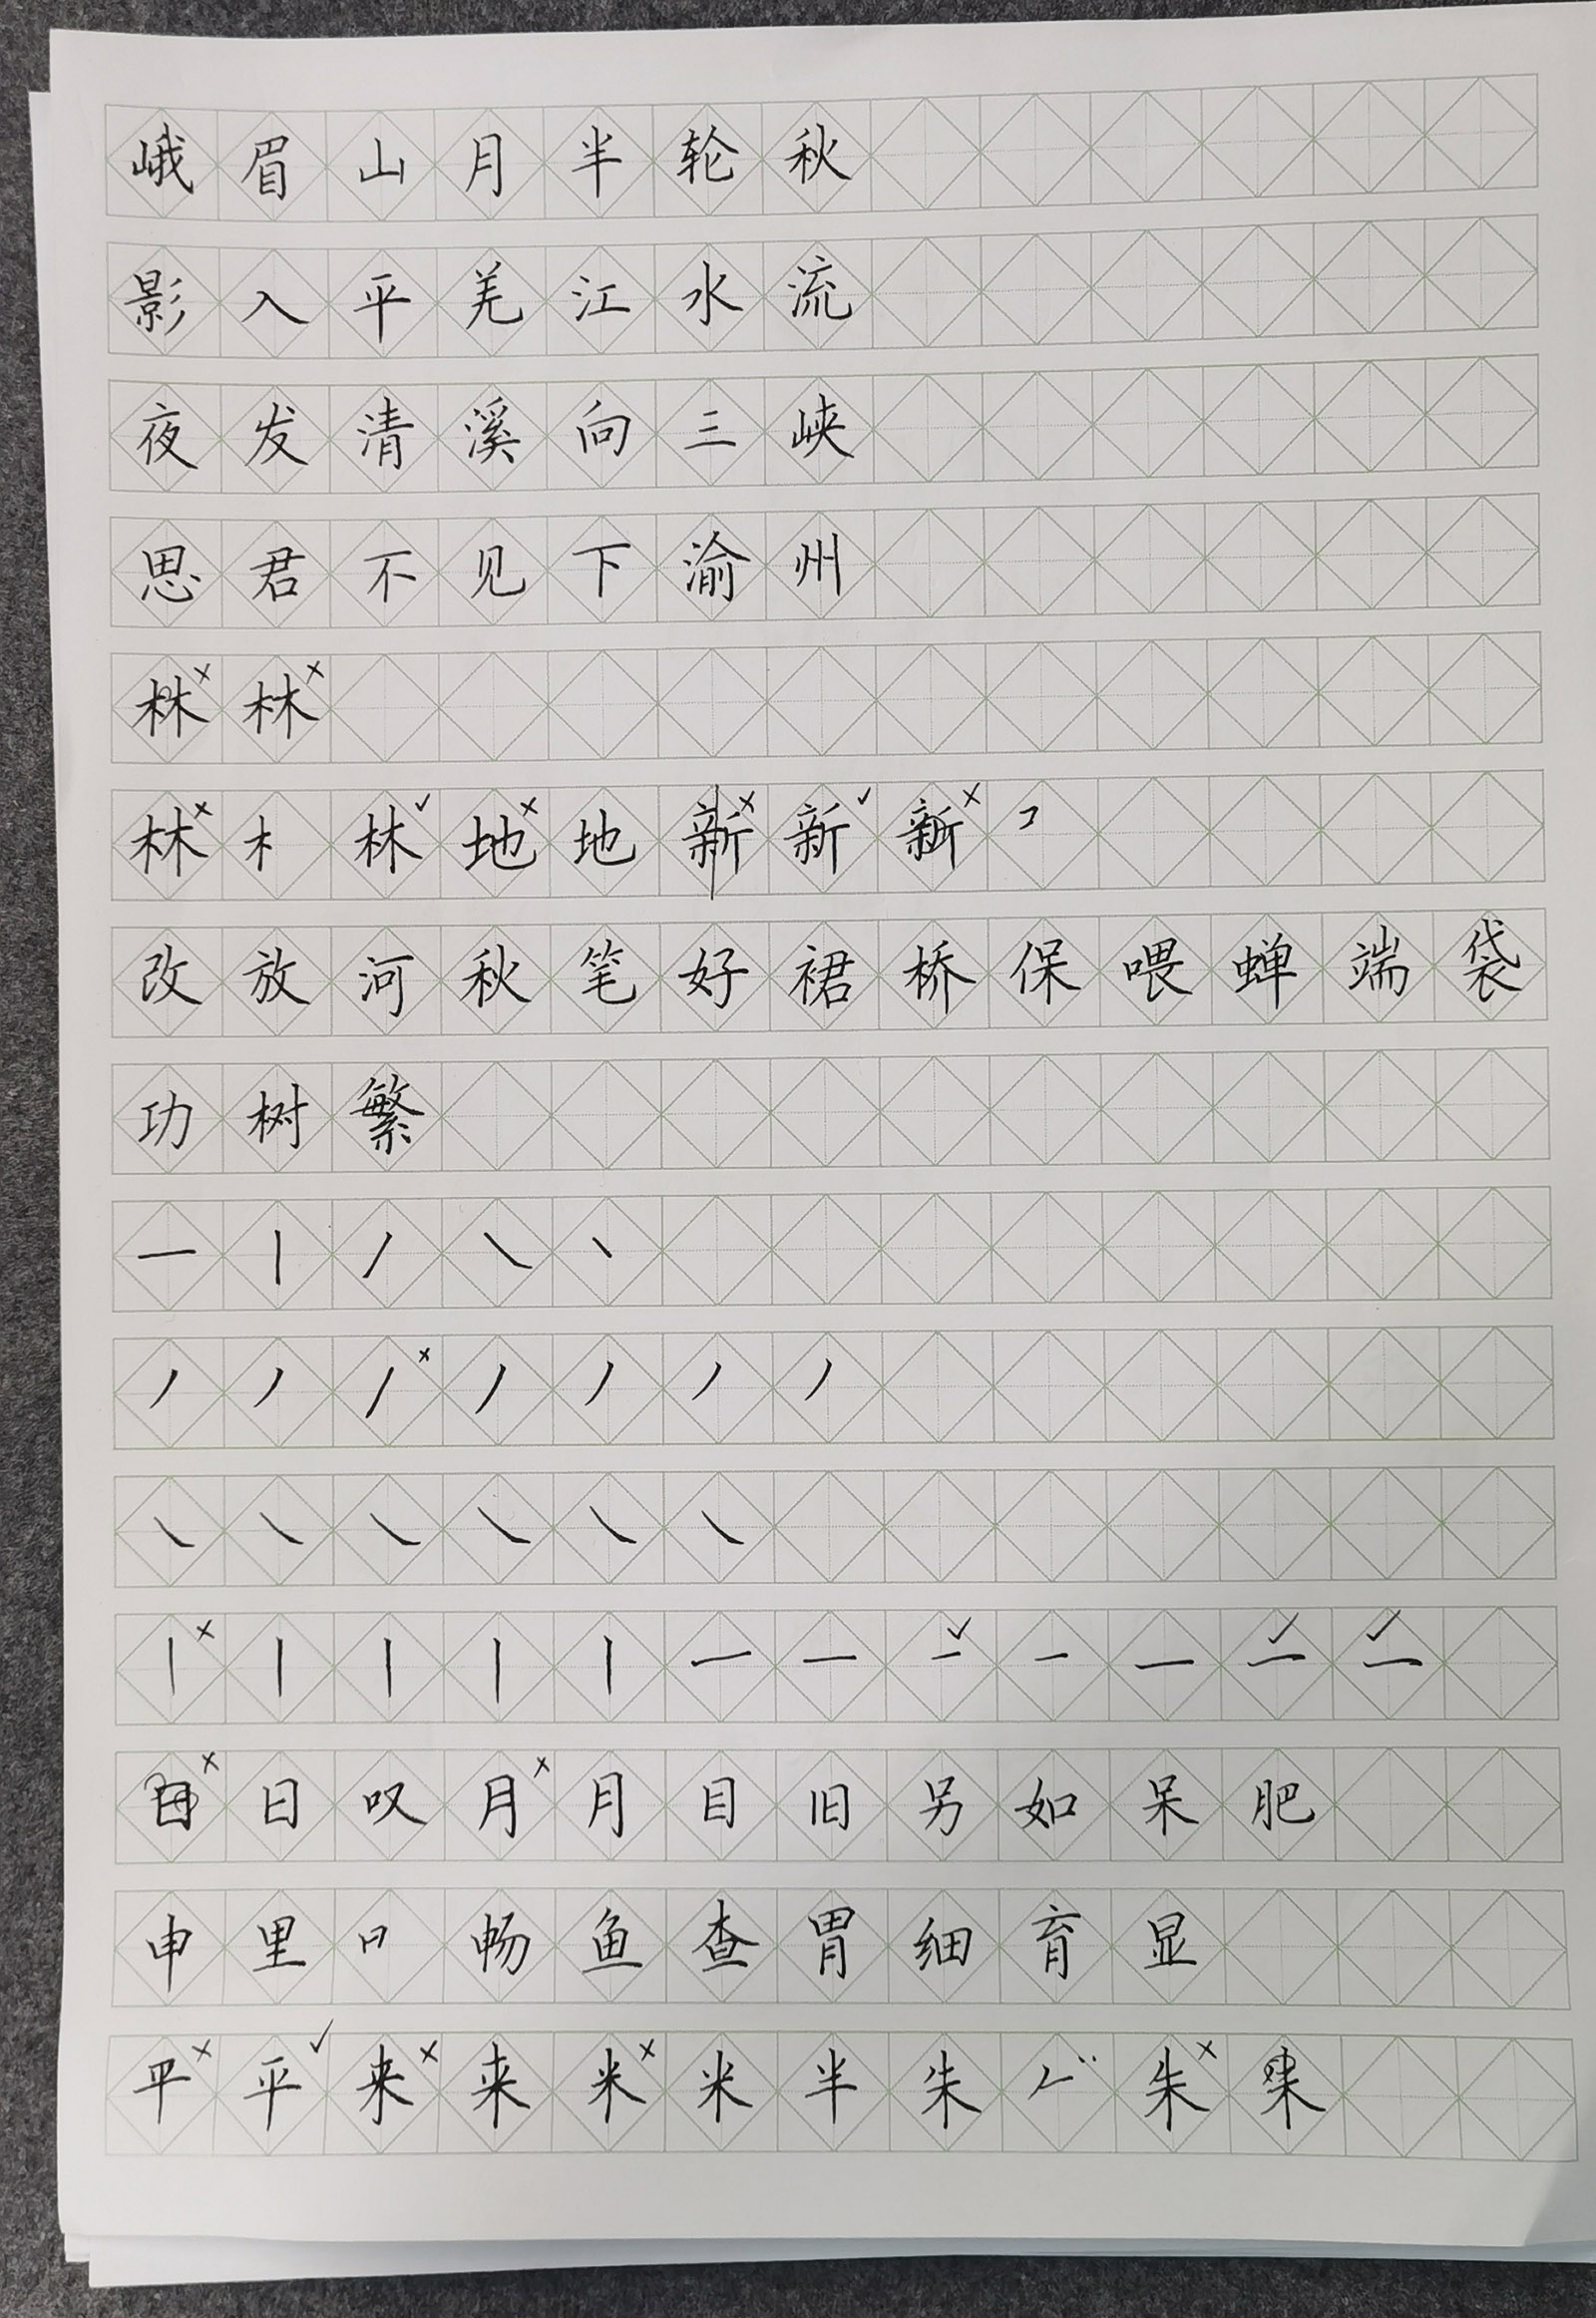 峨眉山月半轮秋
影入平羌江水流
夜发清溪向三峡
思君不见下渝州
林×林×
林×木林✓地×地新×新✓新×コ
改放河秋笔好裙桥保喂蝉端袋
功树繁
一丨丿㇏丶
丿丿丿×丿丿丿丿
㇏㇏㇏㇏㇏㇏
丨×丨丨丨丨一一一✓一一一✓一✓
×日叹月×月目旧另如呆肥
申里畅鱼查胃细育显
平×平✓来×来米×米半朱𠂉朱×